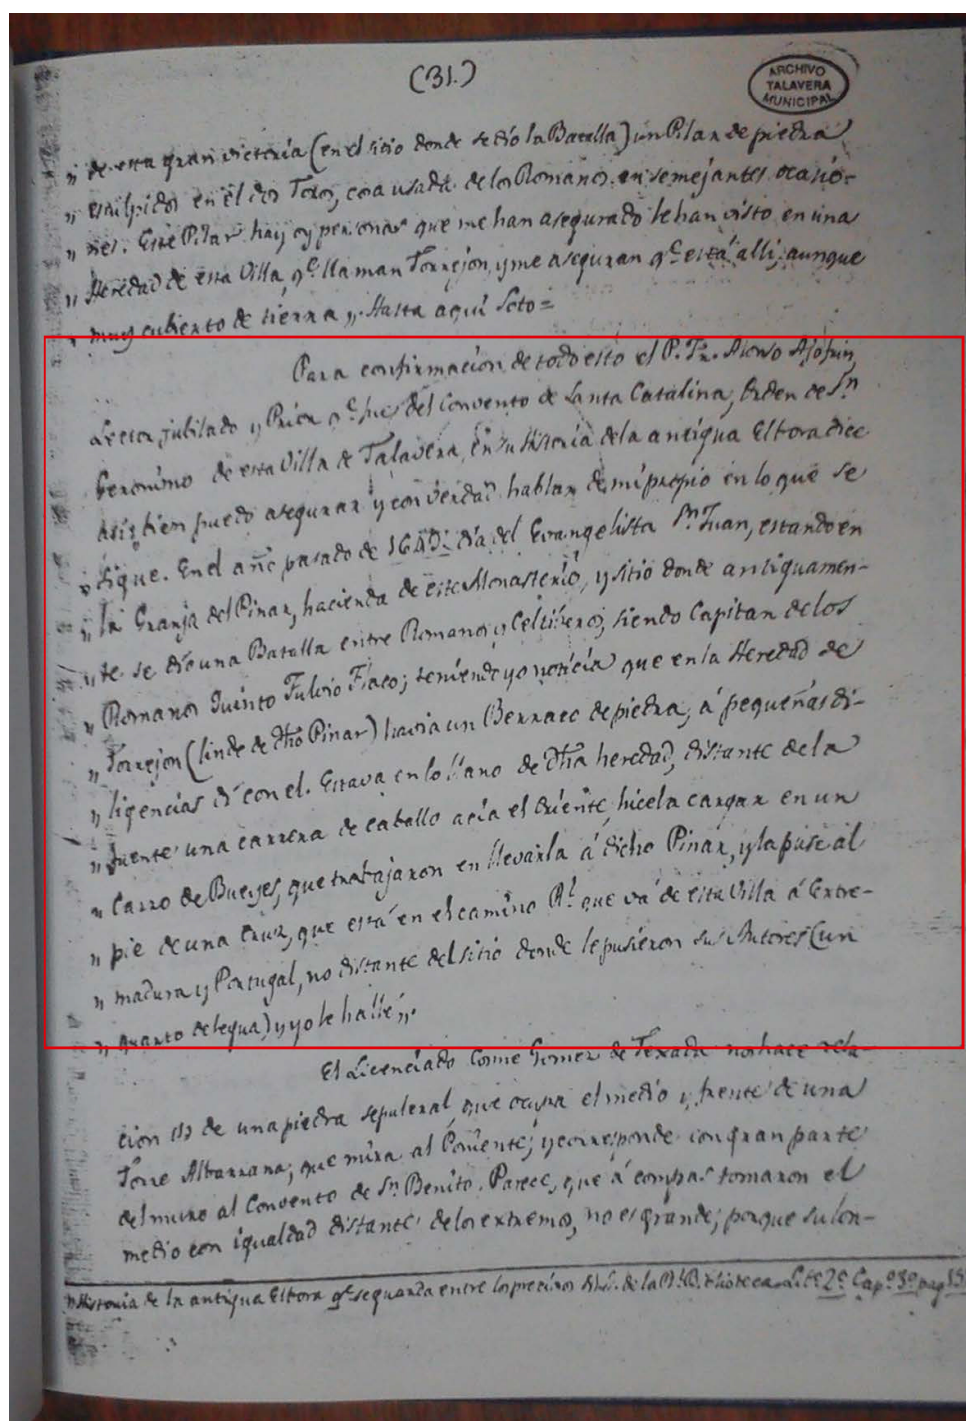 (31.)
ARCHIVO
TALAVERA
MUNICIPAL
„ de esta gran victoria (en el sitio donde se dió la Batalla) un Pilar de piedra
„ esculpidos en él dos Toros, cosa usada de los Romanos en semejantes ocasio-
„ nes. Este Pilar hay oy personas que me han asegurado le han visto en una
„ Heredad de esta Villa, q.e llaman Torrejon, y me aseguran q.e está alli, aunque
„ muy cubierto de tierra „. Hasta aquí Soto =
Para confirmacion de todo esto el P. Fr. Alonso Ajofrin,
Lector jubilado y Prior q.e fue del Convento de Santa Catalina, Orden de S.n
Geronimo de esta Villa de Talavera, en su Historia de la antigua Elbora dice
asi: bien puedo asegurar y con verdad hablar de mi propio en lo que se
„ sigue. En el año pasado de dia del Evangelista S.n Juan, estando en
„ la Granja del Pinar, hacienda de este Monasterio, y sitio donde antiguamen-
„ te se dio una Batalla entre Romanos y Celtiberos, siendo Capitan de los
„ Romanos Quinto Fulvio Flaco; teniendo yo noticia que en la Heredad de
„ Torrejon (linde de dho Pinar) havia un Berraco de piedra, á pequeñas di-
„ ligencias dí con el. Estava en lo llano de dha heredad, distante de la
„ fuente una carrera de caballo acia el Oriente, hicela cargar en un
„ Carro de Bueyes, que trabajaron en llevarla á dicho Pinar, y la puse al
„ pie de una Cruz, que está en el camino R.l que vá de esta Villa á Extre-
„ madura y Portugal, no distante del sitio donde le pusieron sus Autores (un
„ quarto de legua) y yo le hallé „.
El Licenciado Cosme Gomez de Texada nos hace rela-
cion de una piedra sepulcral, que ocupa el medio y frente de una
Torre Albarrana, que mira al Poniente; y corresponde con gran parte
del muro al Convento de S.n Benito. Parece, que á compas tomaron el
medio con igualdad distante de los extremos, no es grande; porque su lon-
Historia de la antigua Elbora q.e se guarda entre los preciosos de la R.l Biblioteca Lib.o 2.o Cap.o 3.o pag.